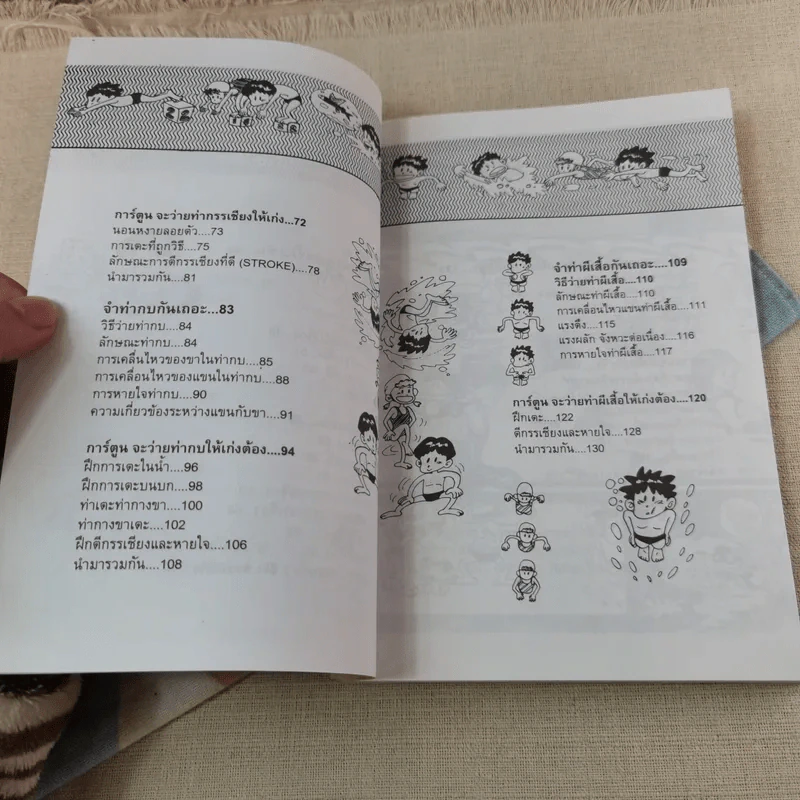 การ์ตูน จะว่ายท่ากรรเชียงให้เก่ง...72
นอนหงายลอยตัว....73
การเตะที่ถูกวิธี....75
ลักษณะการตีกรรเชียงที่ดี (STROKE)....78
นำมารวมกัน....81
จำท่ากบกันเถอะ...83
วิธีว่ายท่ากบ....84
ลักษณะท่ากบ....84
การเคลื่นไหวของขาในท่ากบ....85
การเคลื่อนไหวของแขนในท่ากบ....88
การหายใจท่ากบ....90
ความเกี่ยวข้องระหว่างแขนกับขา....91
การ์ตูน จะว่ายท่ากบให้เก่งต้อง....94
ฝึกการเตะในน้ำ....96
ฝึกการเตะบนบก....98
ท่าเตะท่ากางขา....100
ท่ากางขาเตะ....102
ฝึกตีกรรเชียงและหายใจ....106
นำมารวมกัน....108
จำท่าผีเสื้อกันเถอะ....109
วิธีว่ายท่าผีเสื้อ....110
ลักษณะท่าผีเสื้อ....110
การเคลื่อนไหวแขนท่าผีเสื้อ....111
แรงดึง....115
แรงผลัก จังหวะต่อเนื่อง....116
การหายใจท่าผีเสื้อ....117
การ์ตูน จะว่ายท่าผีเสื้อให้เก่งต้อง....120
ฝึกเตะ....122
ตีกรรเชียงและหายใจ....128
นำมารวมกัน....130